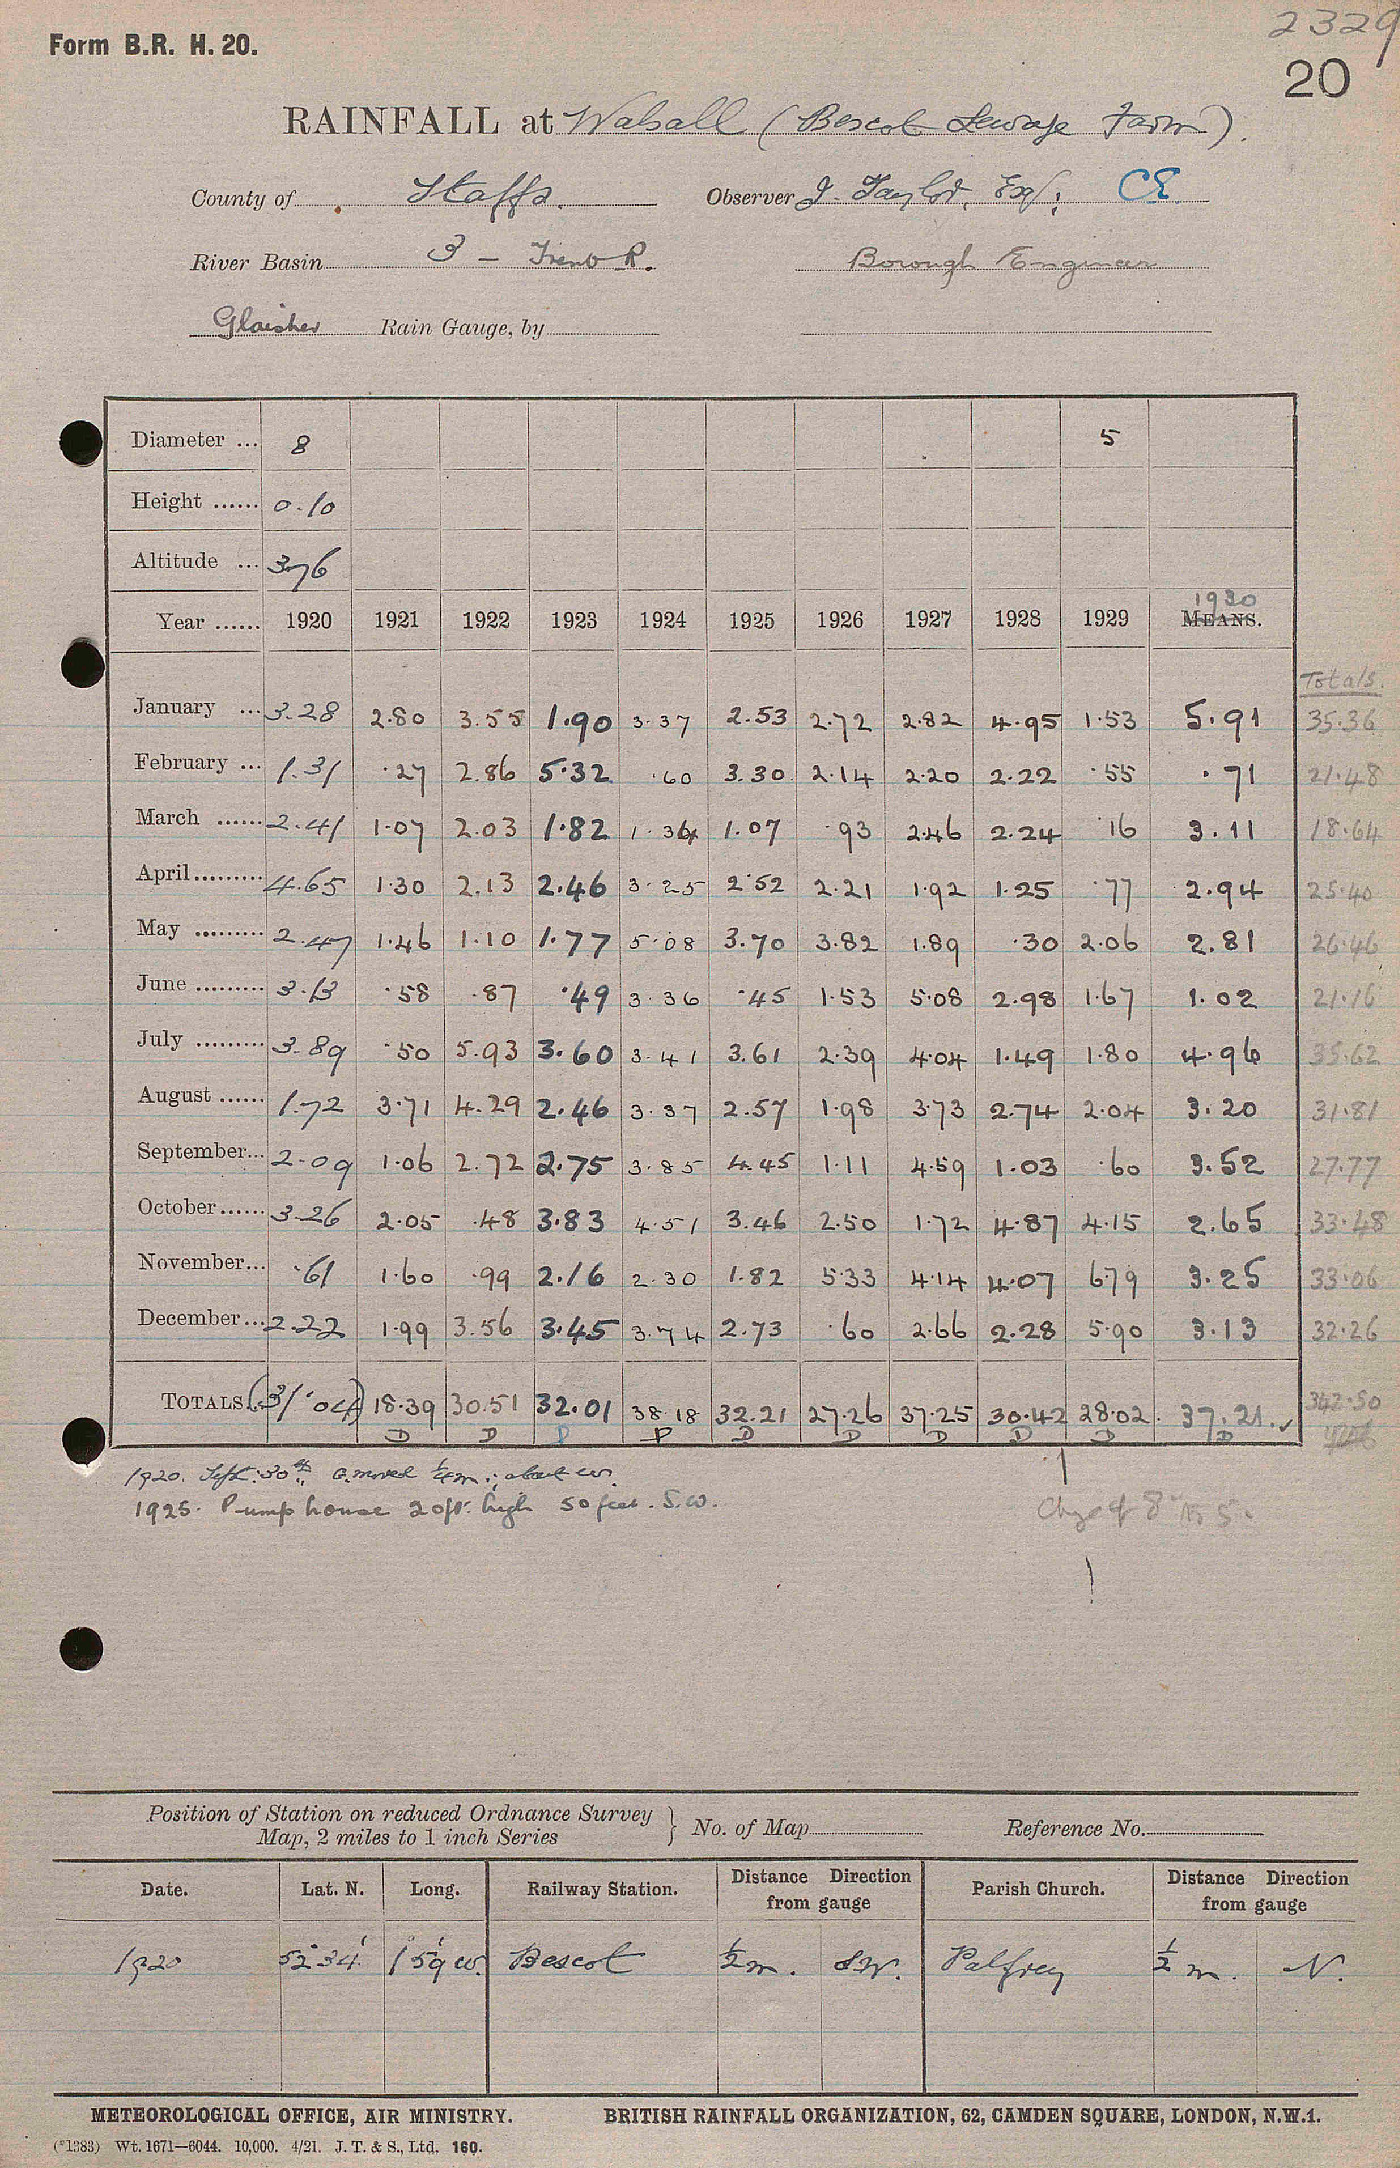 2329
Form B.R. H. 20.
20
RAINFALL at Walsall (Bescot Sewage Farm).
County of Staffs. Observer J. Taylor, Esq; CE
River Basin 3 - Trent R. Borough Engineer
Glaisher Rain Gauge, by
Diameter ... 8 5
Height ...... 0.10
Altitude ... 376
1930
Year ...... 1920 1921 1922 1923 1924 1925 1926 1927 1928 1929 MEANS.
Totals.
January ... 3.28 2.80 3.55 1.90 3.37 2.53 2.72 2.82 4.95 1.53 5.91 35.36
February ... 1.31 .27 2.86 5.32 .60 3.30 2.14 2.20 2.22 .55 .71 21.48
March ...... 2.41 1.07 2.03 1.82 1.36 1.07 .93 2.46 2.24 .16 3.11 18.64
April ......... 4.65 1.30 2.13 2.46 3.25 2.52 2.21 1.92 1.25 .77 2.94 25.40
May ......... 2.47 1.46 1.10 1.77 5.08 3.70 3.82 1.89 .30 2.06 2.81 26.46
June ......... 3.13 .58 .87 .49 3.36 .45 1.53 5.08 2.98 1.67 1.02 21.16
July ......... 3.89 .50 5.93 3.60 3.41 3.61 2.39 4.04 1.49 1.80 4.96 35.62
August ...... 1.72 3.71 4.29 2.46 3.37 2.57 1.98 3.73 2.74 2.04 3.20 31.81
September ... 2.09 1.06 2.72 2.75 3.85 4.45 1.11 4.59 1.03 .60 3.52 27.77
October ...... 3.26 2.05 .48 3.83 4.51 3.46 2.50 1.72 4.87 4.15 2.65 33.48
November ... .61 1.60 .99 2.16 2.30 1.82 5.33 4.14 4.07 6.79 3.25 33.06
December ... 2.22 1.99 3.56 3.45 3.74 2.73 .60 2.66 2.28 5.90 3.13 32.26
TOTALS. (31.04) 18.39 30.51 32.01 38.18 32.21 27.26 37.25 30.42 28.02 37.21 342.50
D D P P D D D D D D
1920. Sept: 30th G. moved 1/4 m.; about
1925. Pump house 20ft. high 50 feet. S.W.
Chge of 8" to 5"
Position of Station on reduced Ordnance Survey Map, 2 miles to 1 inch Series } No. of Map Reference No.
Date. Lat. N. Long. Railway Station. Distance Direction from gauge Parish Church. Distance Direction from gauge
1920 52°34' 1°59' W. Bescot 1/2 m. SW. Palfrey 1/2 m. N.
METEOROLOGICAL OFFICE, AIR MINISTRY. BRITISH RAINFALL ORGANIZATION, 62, CAMDEN SQUARE, LONDON, N.W.1.
(*1383) Wt. 1671—6044. 10,000. 4/21. J. T. & S., Ltd. 160.